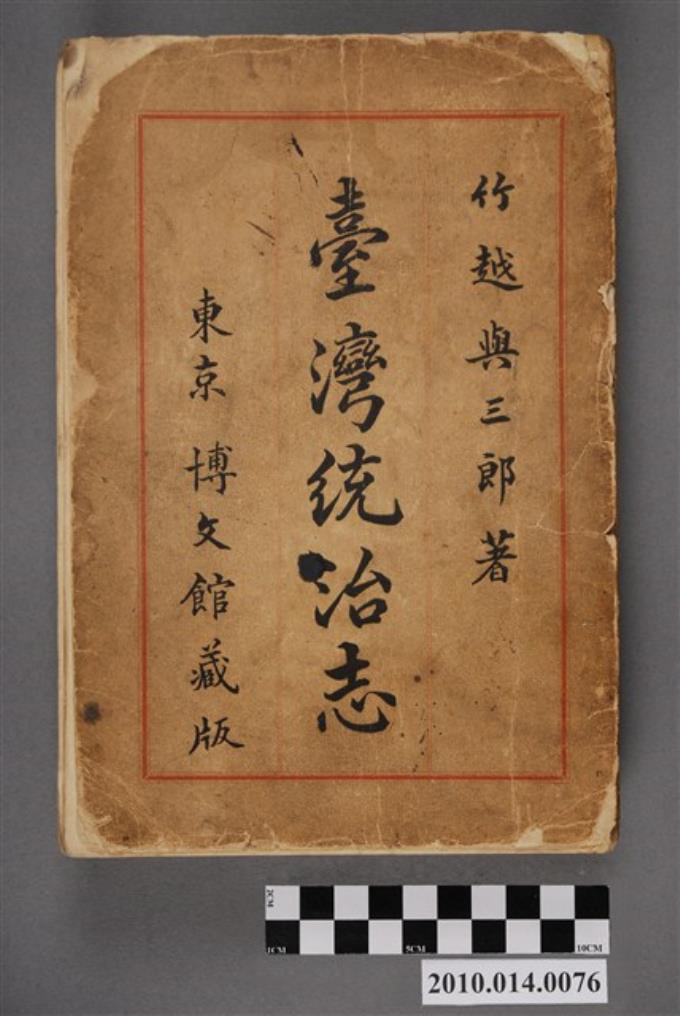 竹越與三郎著
臺灣統治志
東京 博文館藏版
2CM
1CM 5CM 10CM
2010.014.0076